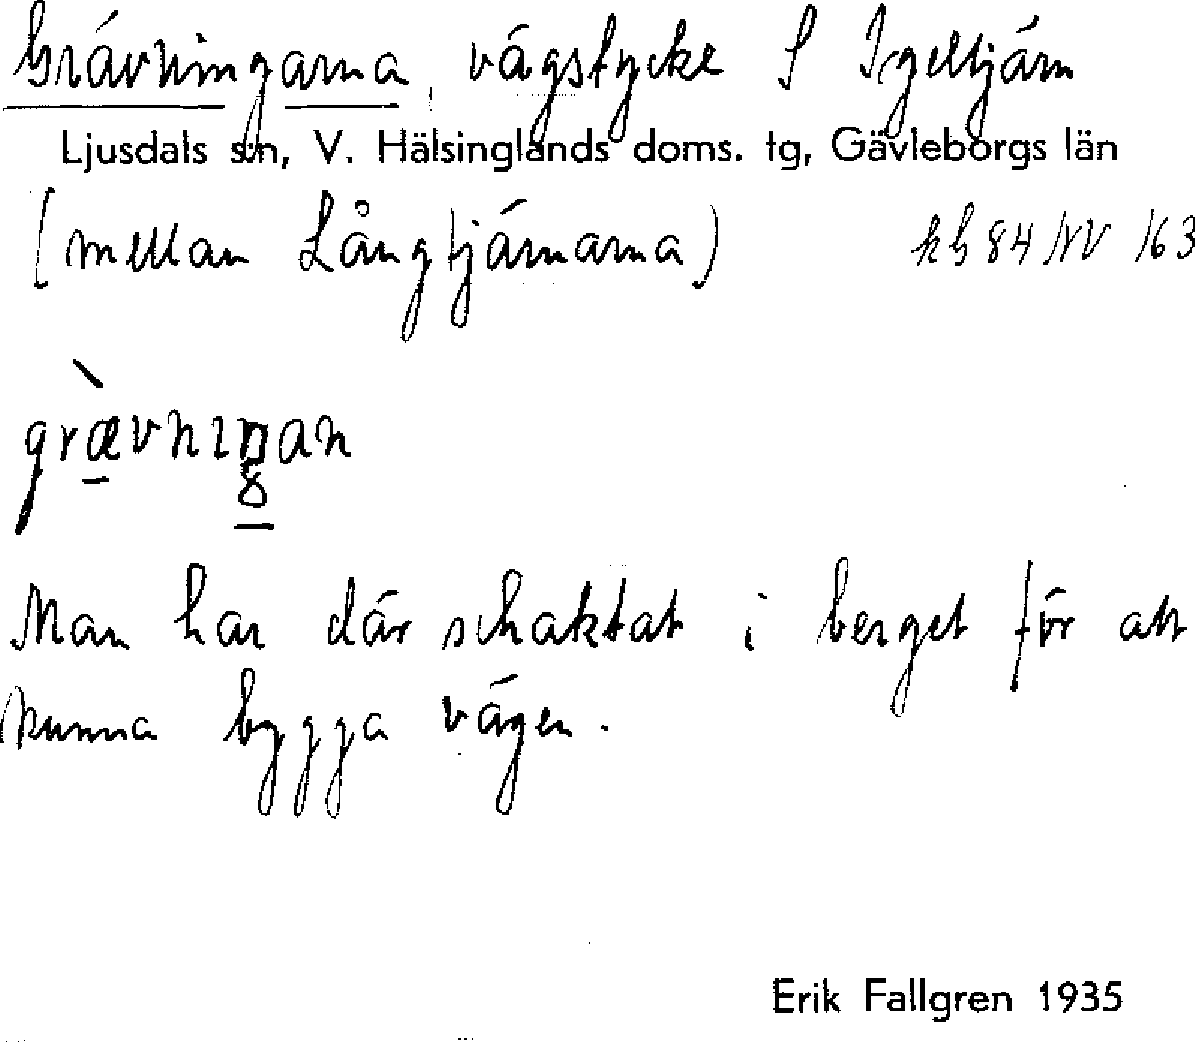 Grävningarna, vägstycke S Igeltjärn
Ljusdals s:n, V. Hälsinglands doms. tg, Gävleborgs län
(mellan Långtjärnarna) kb 84 NV /63
grævnıŋan
Man har där schaktat i berget för att
kunna bygga vägen.
Erik Fallgren 1935